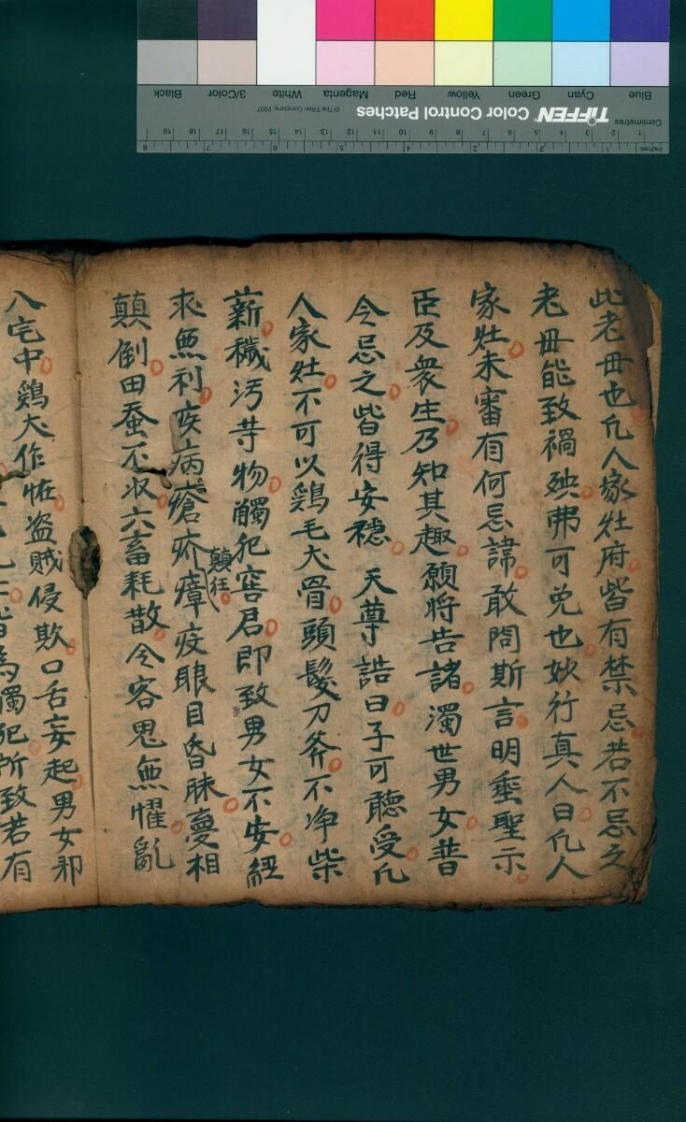 此老毌也凢人家灶府皆有禁忌若不忌之
老毌能致禍殃弗可免也妙行真人曰凢人
家灶未審有何忌諱敢問斯言明垂聖示
臣及衆生乃知其趣願將告諸濁世男女普
令忌之皆得安穏天尊誥曰子可聴受凢
人家灶不可以鷄毛犬骨頭髮刀斧不净柴
薪穢污等物觸犯窖君即致男女不安經
求無利疾病瘡疥瘴疫眼目昏昧憂相
顛狂
顛倒田蚕不收六畜耗散令客鬼無懼亂
入宅中鷄犬作怪盗賊侵欺口舌妄起男女邪
皆為獨犯所致若有
Blue Cyan Green Yellow Red Magenta White 3/Color Black
TIFFEN Color Control Patches
© The Tiffen Company, 2007
Centimetres
Inches